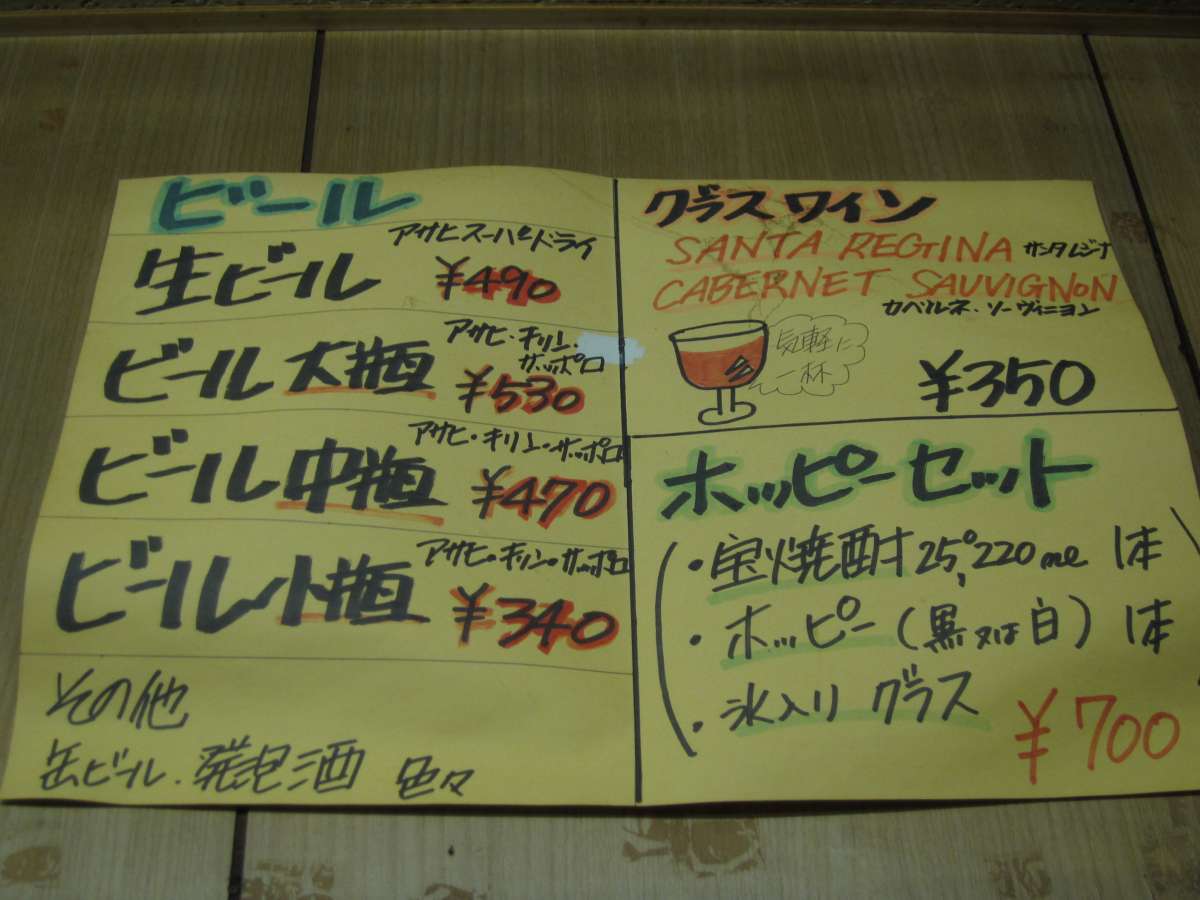 ビール
アサヒスーパードライ
生ビール ¥490
アサヒ・キリン・
サッポロ
ビール大瓶 ¥530
アサヒ・キリン・サッポロ
ビール中瓶 ¥470
アサヒ・キリン・サッポロ
ビール小瓶 ¥340
その他
缶ビール・発泡酒 色々
グラスワイン
SANTA REGINA サンタレジナ
CABERNET SAUVIGNON
カベルネ・ソーヴィニヨン
気軽に
一杯
¥350
ホッピーセット
・宝焼酎25°,220ml 1本
・ホッピー(黒又は白) 1本
・氷入りグラス
¥700